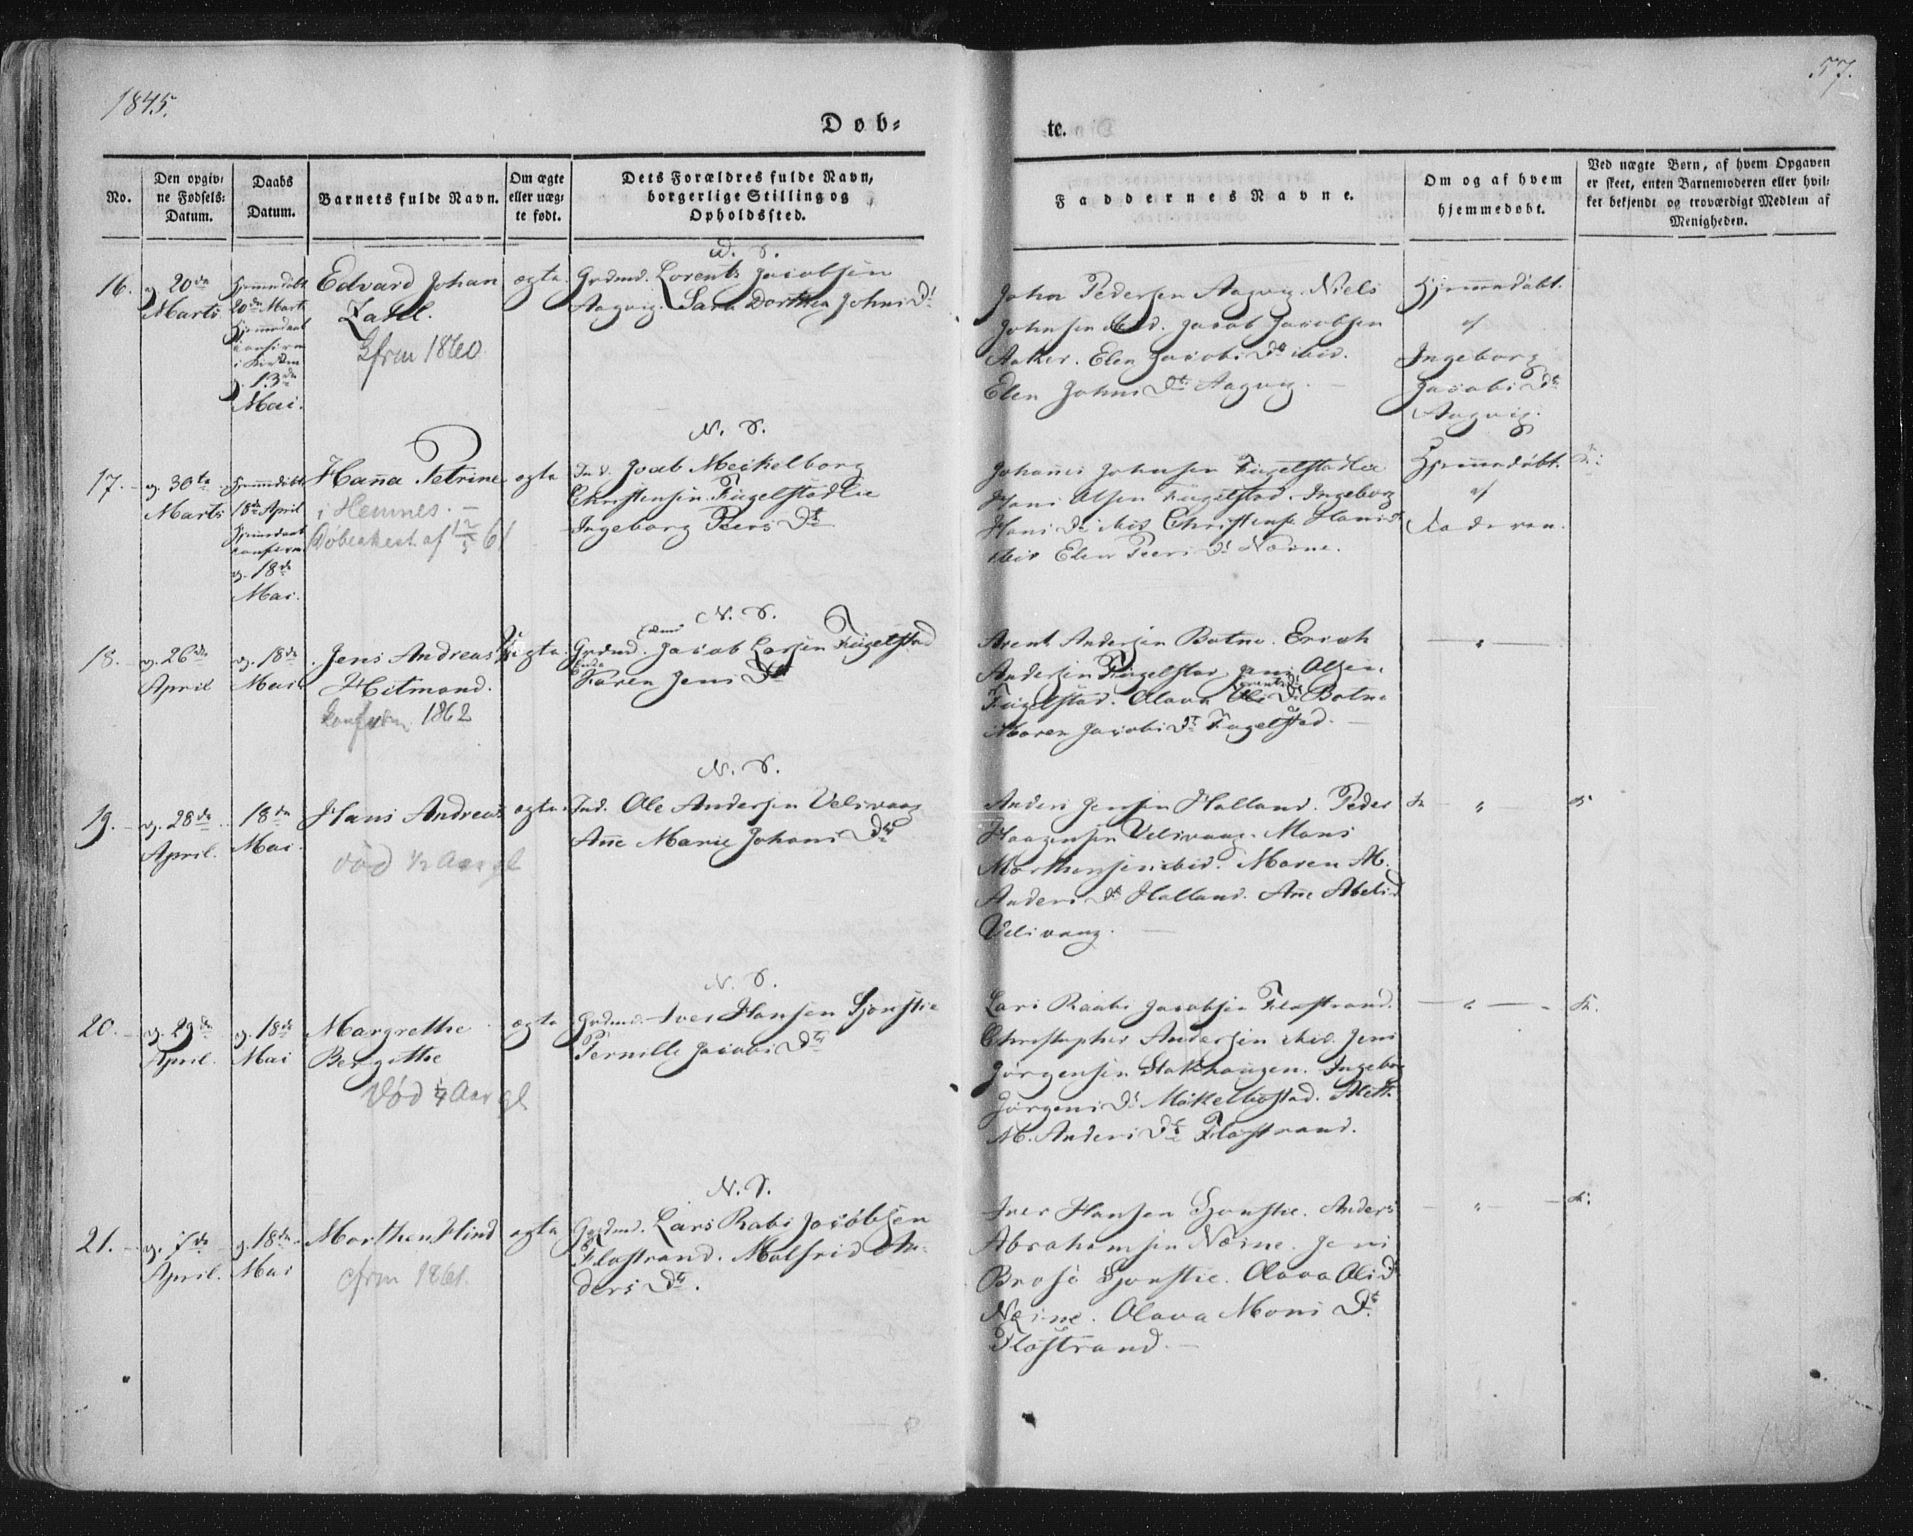 1845.
57.
Døb-
te.
No.
Den opgiv-
ne Fødsels-
Datum.
Daabs
Datum.
Barnets fulde Navn.
Om ægte
eller uæg-
te født.
Dets Forældres fulde Navn,
borgerlige Stilling og
Opholdssted.
Faddernes Navne.
Om og af hvem
hjemmedøbt.
Ved uægte Børn, af hvem Opgaven
er skeet, enten Barnemoderen eller hvil-
ker bekjendt og troværdigt Medlem af
Menigheden.
16.
20de
Marts
Hjemmedøbt
20de Marts
13de
Mai.
Edvard Johan
Zahl.
Cfrm 1860
ægte
Grdmd. Lorents Jacobsen
Aagvig. Sara Dorthea Johns Dt.
John Pedersen Aagvig. Niels
Johnsen ibid. Jacob Jacobsen
Aaker. Elen Jacobs Dt. ibid.
Elen Johns Dt. Aagvig.
Hjemmedøbt
af
Ingeborg
Jacobs Dt
Aagvig.
17.
30te
Marts
Hjemmedøbt
18de April
18de
Mai.
Hanna Petrine
i Hemnes.
Døbeattest af 12/5 61
ægte
N. S.
Ind. Jacob Meikelborg
Christensen Fugelstadlie
Ingeborg Peers Dt
Johannes Johnsen Fugelstadlie
Hans Olsen Fugelstad. Ingeborg
Hans Dt. ibid. Christense Hans Dt
ibid Elen Peers Dt Næsne.
Hjemmedøbt.
af
Faderen.
18.
26de
April
18de
Mai
Jens Andreas
Hitmand.
Confirm 1862
ægte
N. S.
Grdmd. Jacob Larsen Fugelstad
Karen Jens Dt
Arent Andersen Botne. Erich
Andersen Fugelstad Jens Olsen
Fugelstad. Olava Ols Dt Botne
Maren Jacobs Dt Fugelstad.
19.
28de
April.
18de
Mai
Hans Andreas
død 1/2 Aar gl
ægte
N. S.
Ind. Ole Andersen Velsvaag
Ane Marie Johans Dt
Anders Jensen Halland. Peder
Haagensen Velsvaag. Mons
Morthensen ibid. Maren M.
Anders Dt Halland. Ane Abels Dt
Velsvaag.
20.
29de
April.
18de
Mai
Margrethe
Bergithe
død 1/4 Aar gl
ægte
N. S.
Grdmd. Iver Hansen Sjonslie
Pernille Jacobs Dt
Lars Raabs Jacobsen Flostrand.
Christopher Andersen ibid. Jens
Jørgensen Stokhaugen. Ingeborg
Jørgens Dt Mokelbostad.
M. Anders Dt Flostrand.
21.
7de
April.
18de
Mai
Morthen Hind
Cfrm 1861.
ægte
N. S.
Grdmd. Lars Rabs Jacobsen
Flostrand. Malfrid An-
ders Dt.
Iver Hansen Sjonslie. Anders
Abrahamsen Næsne. Jens
Brose Sjonslie. Olava Ols Dt
Næsne. Olava Mons Dt
Flostrand.